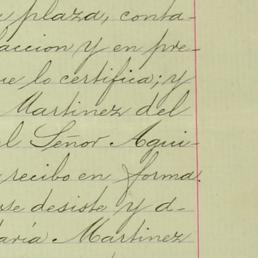 plaza, conta-
faccion y en pre-
que lo certifica; y
Martinez del
el Señor Agui-
recibo en forma.
se desiste y a-
María Martinez